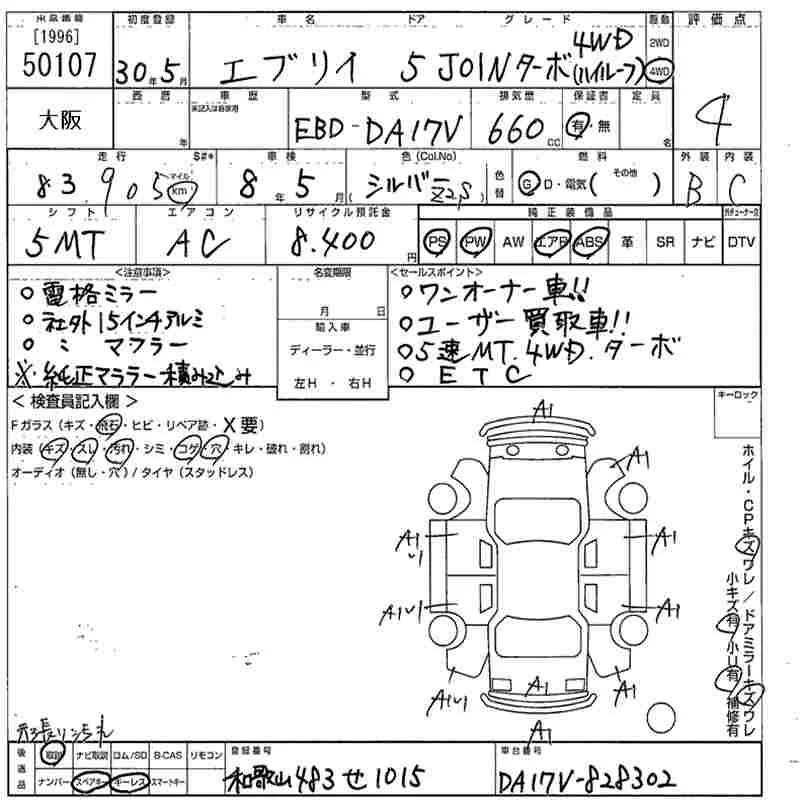 [1996]
50107
初度登録 車名 ドア グレード 駆動 評価点
30年5月 エブリイ 5 JOINターボ 4WD (ハイルーフ) 2WD 4WD
4
大阪
西暦 車歴 型式 排気歴 保証書 定員
年 EBD-DA17V 660cc 有・無 名
走行 S#* 車検 色(Col.No) 色替 燃料 外装 内装
83,905 マイル km 8年5月 (シルバー Z2S) G D・電気( その他 ) B C
シフト エアコン リサイクル預託金 純正装備品
5MT AC 8.400円 PS PW AW エアB ABS 革 SR ナビ DTV
<注意事項>
○電格ミラー
○社外15インチアルミ
○〃 マフラー
※純正マラー積み込み
名変期限
月 日
輸入車
ディーラー・並行
左H・右H
<セールスポイント>
○ワンオーナー車!!
○ユーザー買取車!!
○5速MT.4WD.ターボ
○ETC
<検査員記入欄>
Fガラス(キズ・飛石・ヒビ・リペア跡・X要)
内装(キズ・スレ・汚れ・シミ・コゲ・穴・キレ・破れ・割れ)
オーディオ(無し・穴)/タイヤ(スタッドレス)
キーロック
ホイル・CPキズワレ/ドアミラーキズワレ
小キズ有 小U有 補修有
A1
A1
A1
A1
A1
A1
A1
A1
A1
A1
A1
後送品 取説 ナビ取説 ロム/SD B-CAS リモコン
ナンバー スペアキー キーレス スマートキー
登録番号
和歌山483せ1015
車台番号
DA17V-828302